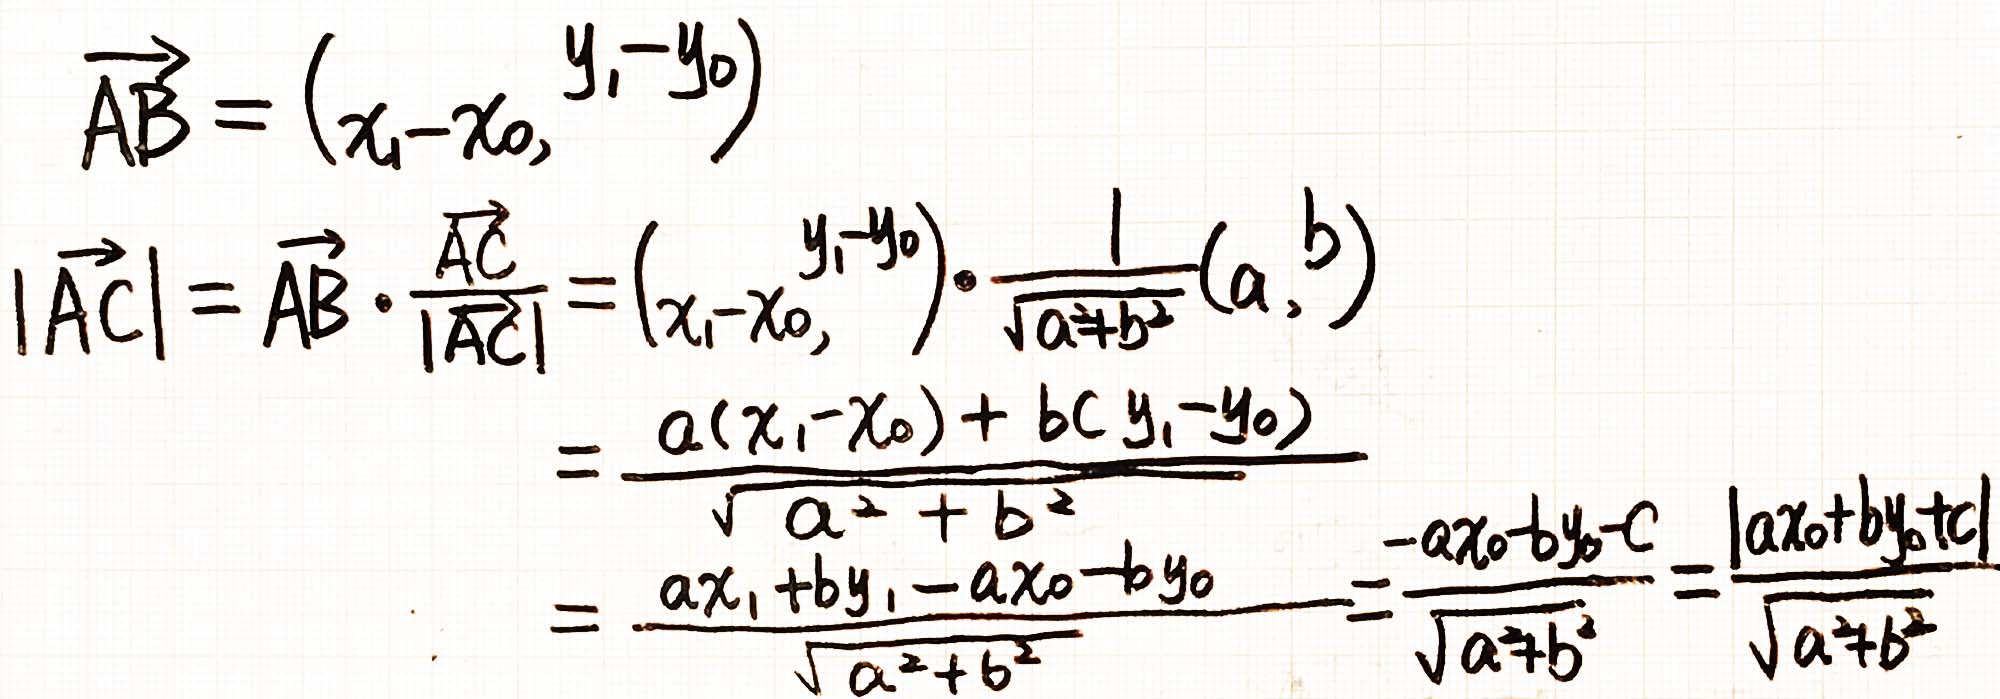 $\overrightarrow{AB} = (x_1 - x_0, y_1 - y_0)$
$|\overrightarrow{AC}| = \overrightarrow{AB} \cdot \frac{\overrightarrow{AC}}{|\overrightarrow{AC}|} = (x_1 - x_0, y_1 - y_0) \cdot \frac{1}{\sqrt{a^2 + b^2}} (a, b)$
$= \frac{a(x_1 - x_0) + b(y_1 - y_0)}{\sqrt{a^2 + b^2}}$
$= \frac{ax_1 + by_1 - ax_0 - by_0}{\sqrt{a^2 + b^2}} = \frac{-ax_0 - by_0 - c}{\sqrt{a^2 + b^2}} = \frac{|ax_0 + by_0 + c|}{\sqrt{a^2 + b^2}}$